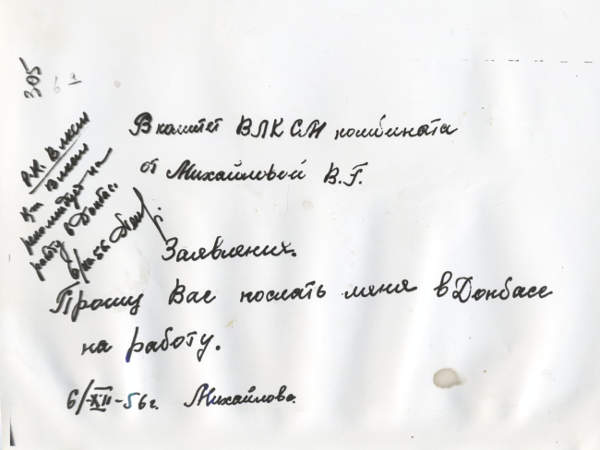 305
Р.К. ВЛКСМ
К-т ВЛКСМ
рекомендует на
работу в Донбасс
6/XII 56
В комитет ВЛКСМ комбината
от Михайловой В.Г.
Заявление.
Прошу Вас послать меня в Донбасс
на работу.
6/XII-56г. Михайлова